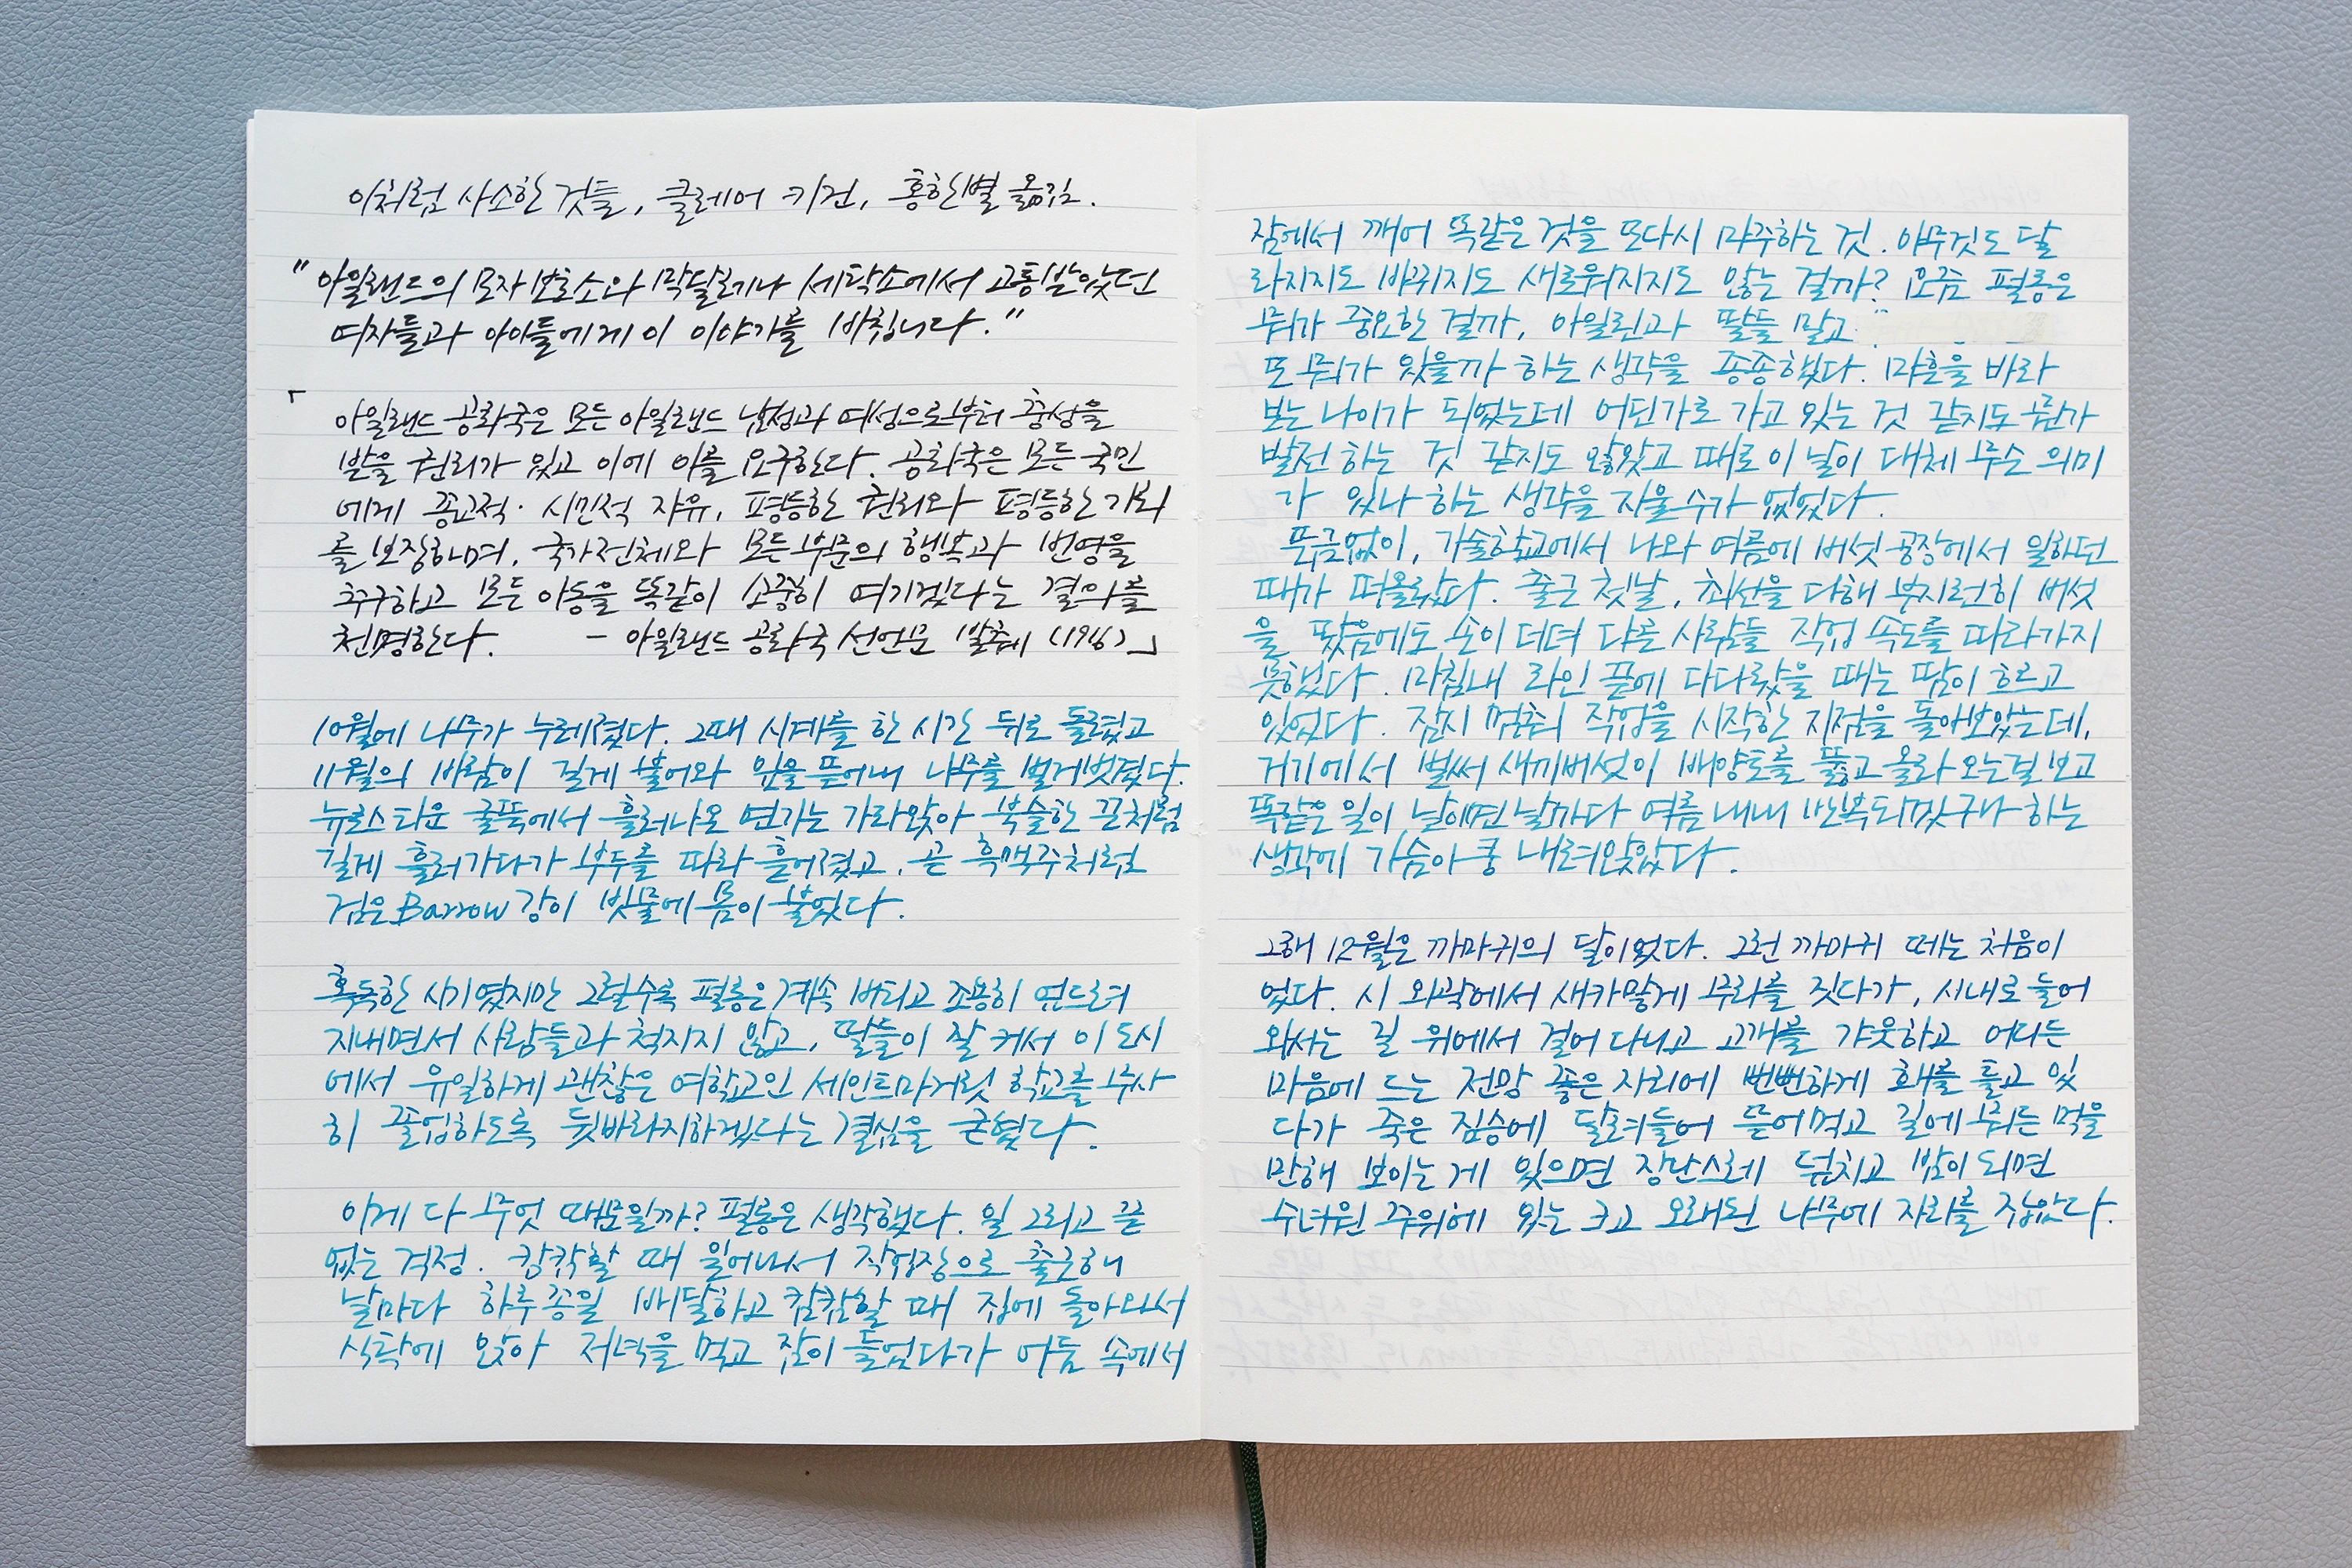 이처럼 사소한 것들, 클레어 키건, 홍한별 옮김.
"아일랜드의 모자 보호소와 막달레나 세탁소에서 고통받았던
여자들과 아이들에게 이 이야기를 바칩니다."
「
아일랜드 공화국은 모든 아일랜드 남성과 여성으로부터 충성을
받을 권리가 있고 이에 이를 요구한다. 공화국은 모든 국민
에게 종교적·시민적 자유, 평등한 권리와 평등한 기회
를 보장하며, 국가 전체와 모든 부문의 행복과 번영을
추구하고 모든 아동을 똑같이 소중히 여기겠다는 결의를
천명한다. - 아일랜드 공화국 선언문 발췌 (1916)」
10월에 나무가 누레졌다. 그때 시계를 한 시간 뒤로 돌렸고
11월의 바람이 길게 불어와 잎을 뜯어내 나무를 벌거벗겼다.
뉴로스 타운 굴뚝에서 흘러나온 연기는 가라앉아 북슬한 끈처럼
길게 흘러가다가 부두를 따라 흩어졌고, 곧 흑맥주처럼
검은 Barrow 강이 빗물에 몸이 불었다.
혹독한 시기였지만 그럴수록 펄롱은 계속 버티고 조용히 엎드려
지내면서 사람들과 척지지 않고, 딸들이 잘 커서 이 도시
에서 유일하게 괜찮은 여학교인 세인트마거릿 학교를 무사
히 졸업하도록 뒷바라지하겠다는 결심을 굳혔다.
이게 다 무엇 때문일까? 펄롱은 생각했다. 일 그리고 끝
없는 걱정. 캄캄할 때 일어나서 작업장으로 출근해
날마다 하루 종일 배달하고 캄캄할 때 집에 돌아와서
식탁에 앉아 저녁을 먹고 잠이 들었다가 어둠 속에서
잠에서 깨어 똑같은 것을 또다시 마주하는 것. 아무것도 달
라지지도 바뀌지도 새로워지지도 않는 걸까? 요즘 펄롱은
뭐가 중요한 걸까, 아일린과 딸들 말고
또 뭐가 있을까 하는 생각을 종종했다. 마흔을 바라
보는 나이가 되었는데 어딘가로 가고 있는 것 같지도 뭔가
발전 하는 것 같지도 않았고 때로 이 날이 대체 무슨 의미
가 있나 하는 생각을 지울 수가 없었다.
뜬금없이, 기술학교에서 나와 여름에 버섯 공장에서 일하던
때가 떠올랐다. 출근 첫날, 최선을 다해 부지런히 버섯
을 땄음에도 손이 더뎌 다른 사람들 작업 속도를 따라가지
못했다. 마침내 라인 끝에 다다랐을 때는 땀이 흐르고
있었다. 잠시 멈춰 작업을 시작한 지점을 돌아보았는데,
거기에서 벌써 새끼버섯이 배양토를 뚫고 올라 오는걸 보고
똑같은 일이 날이면 날마다 여름 내내 반복되겠구나 하는
생각에 가슴이 쿵 내려앉았다.
그해 12월은 까마귀의 달이었다. 그런 까마귀 떼는 처음이
었다. 시 외곽에서 새카맣게 무리를 짓다가, 시내로 들어
와서는 길 위에서 걸어 다니고 고개를 갸웃하고 어디든
마음에 드는 전망 좋은 자리에 뻔뻔하게 홰를 틀고 있
다가 죽은 짐승에 달려들어 뜯어먹고 길에 뭐든 먹을
만해 보이는 게 있으면 장난스레 덮치고 밤이 되면
수녀원 주위에 있는 크고 오래된 나무에 자리를 잡았다.